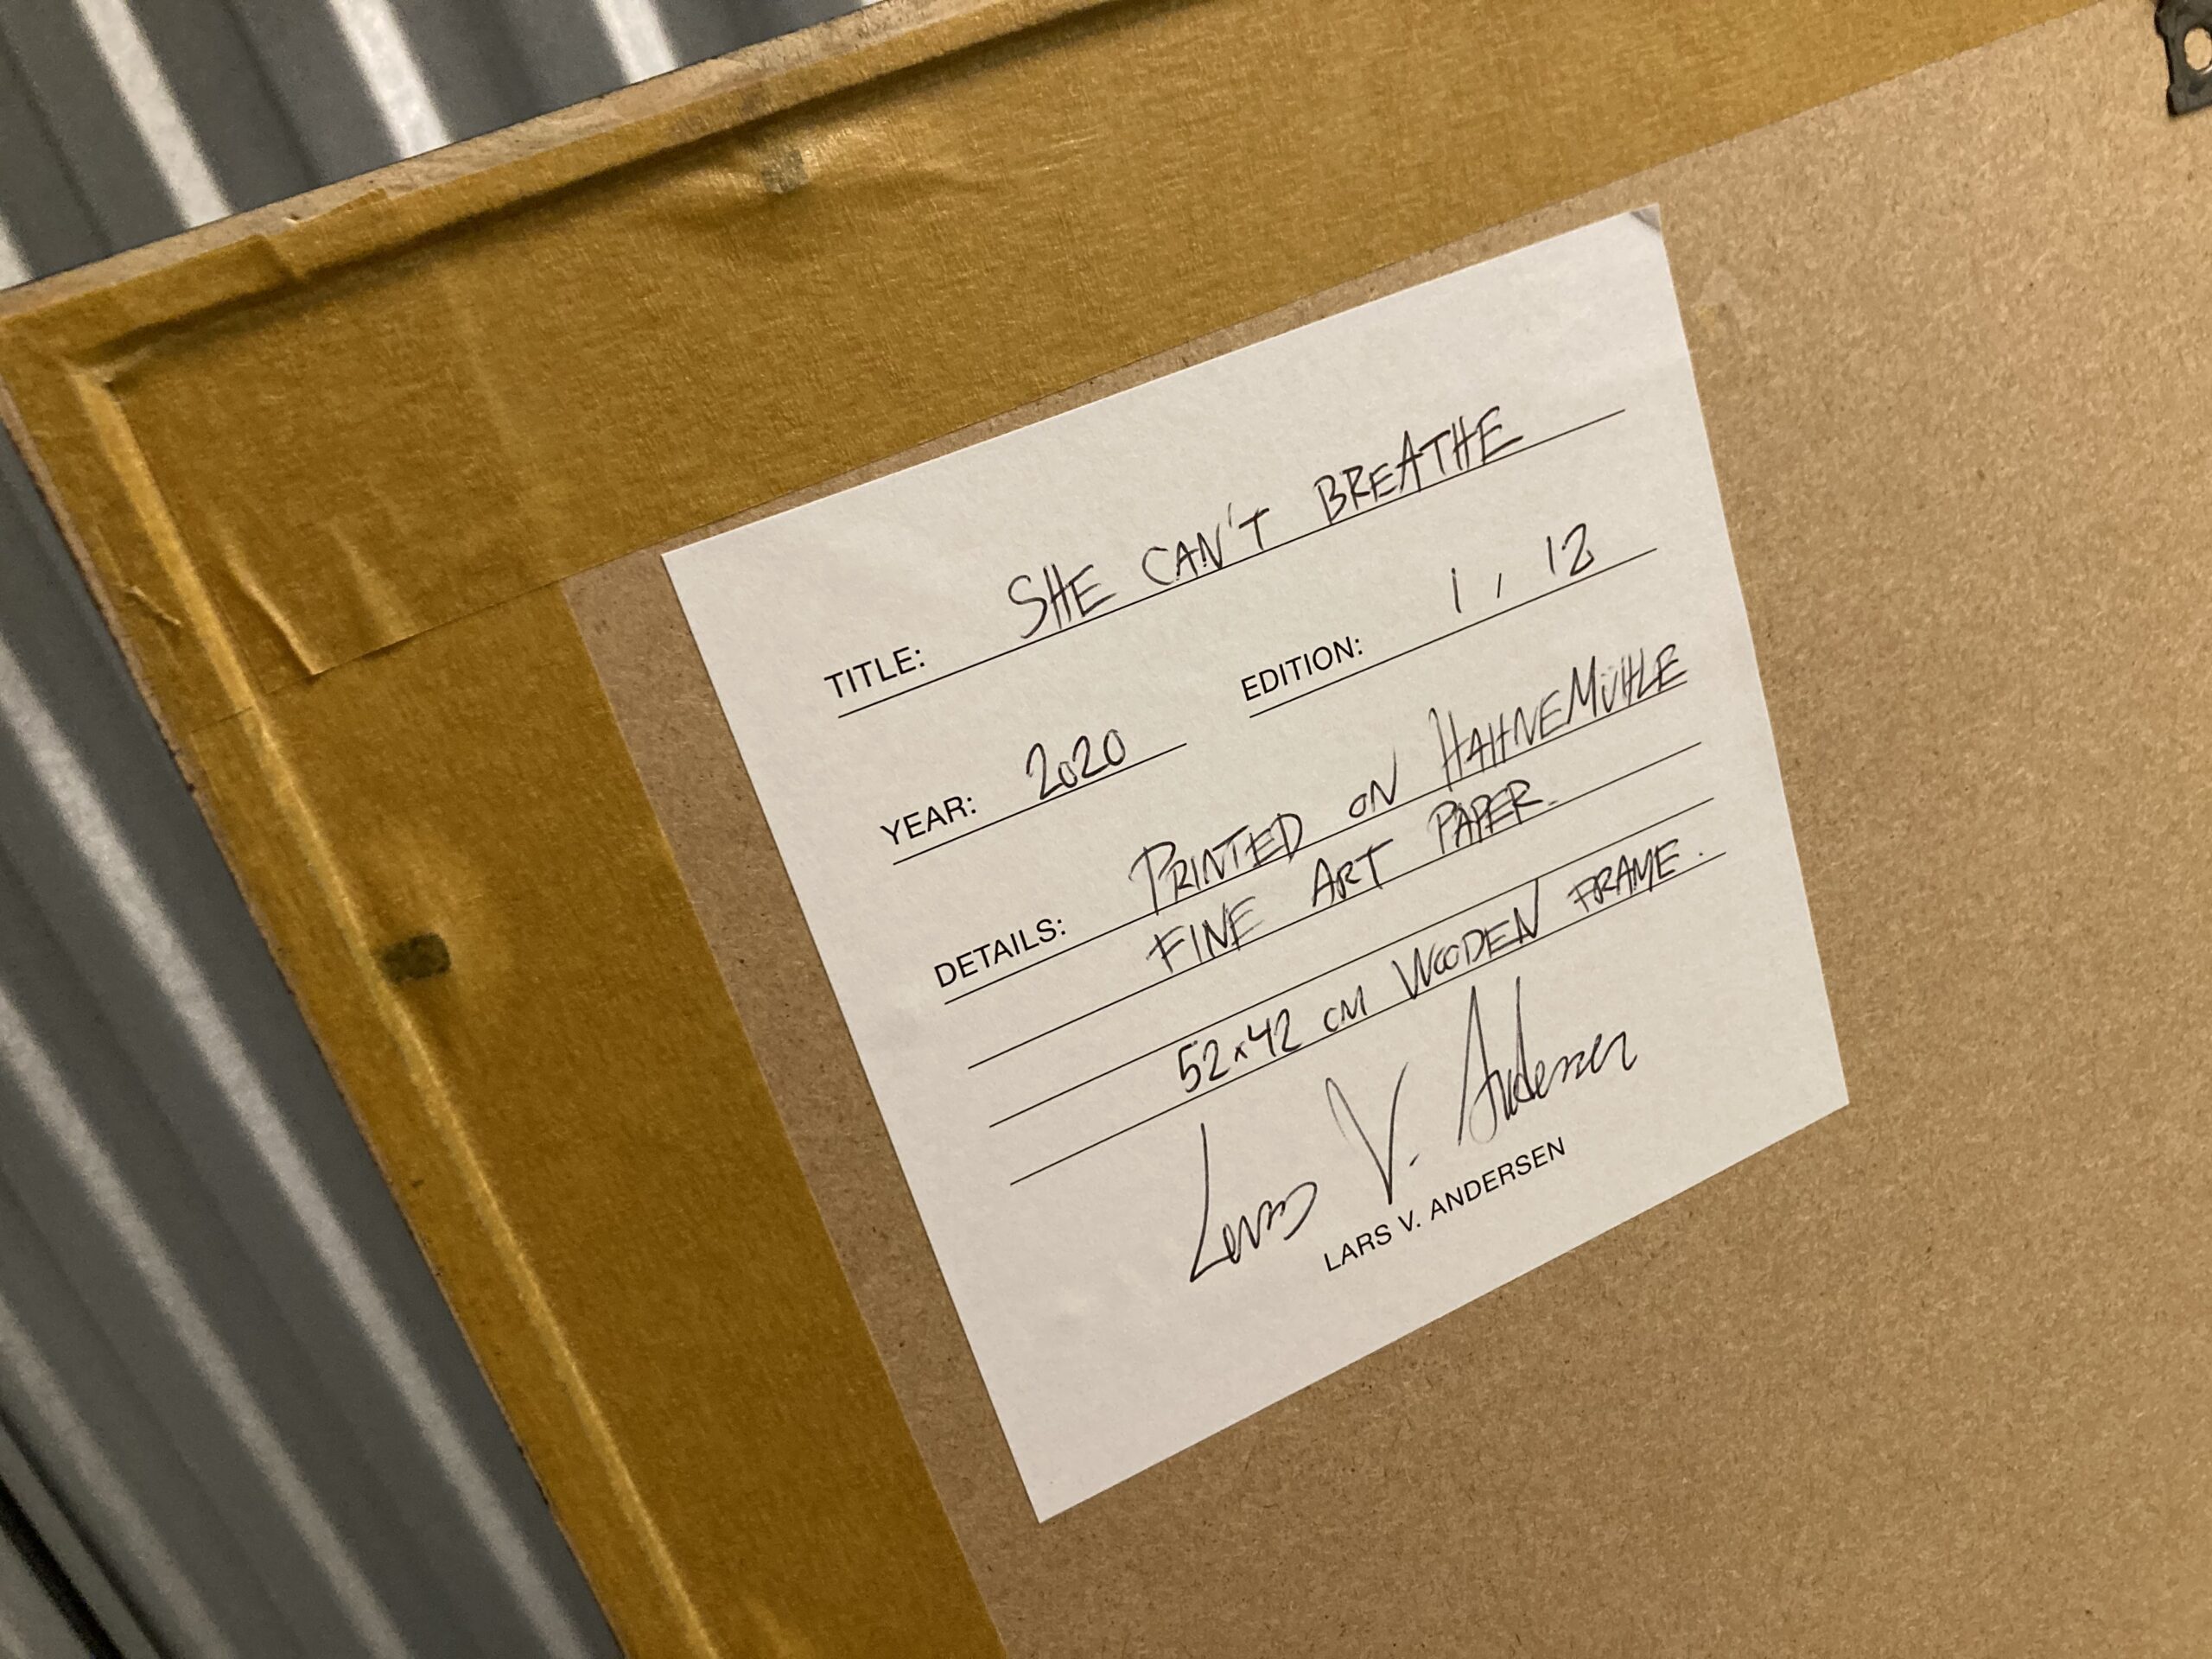 TITLE: SHE CAN'T BREATHE
EDITION: 1, 12
YEAR: 2020
DETAILS: PRINTED ON HAHNEMÜHLE
FINE ART PAPER.
52x42 CM WOODEN FRAME.
Lars V. Andersen
LARS V. ANDERSEN